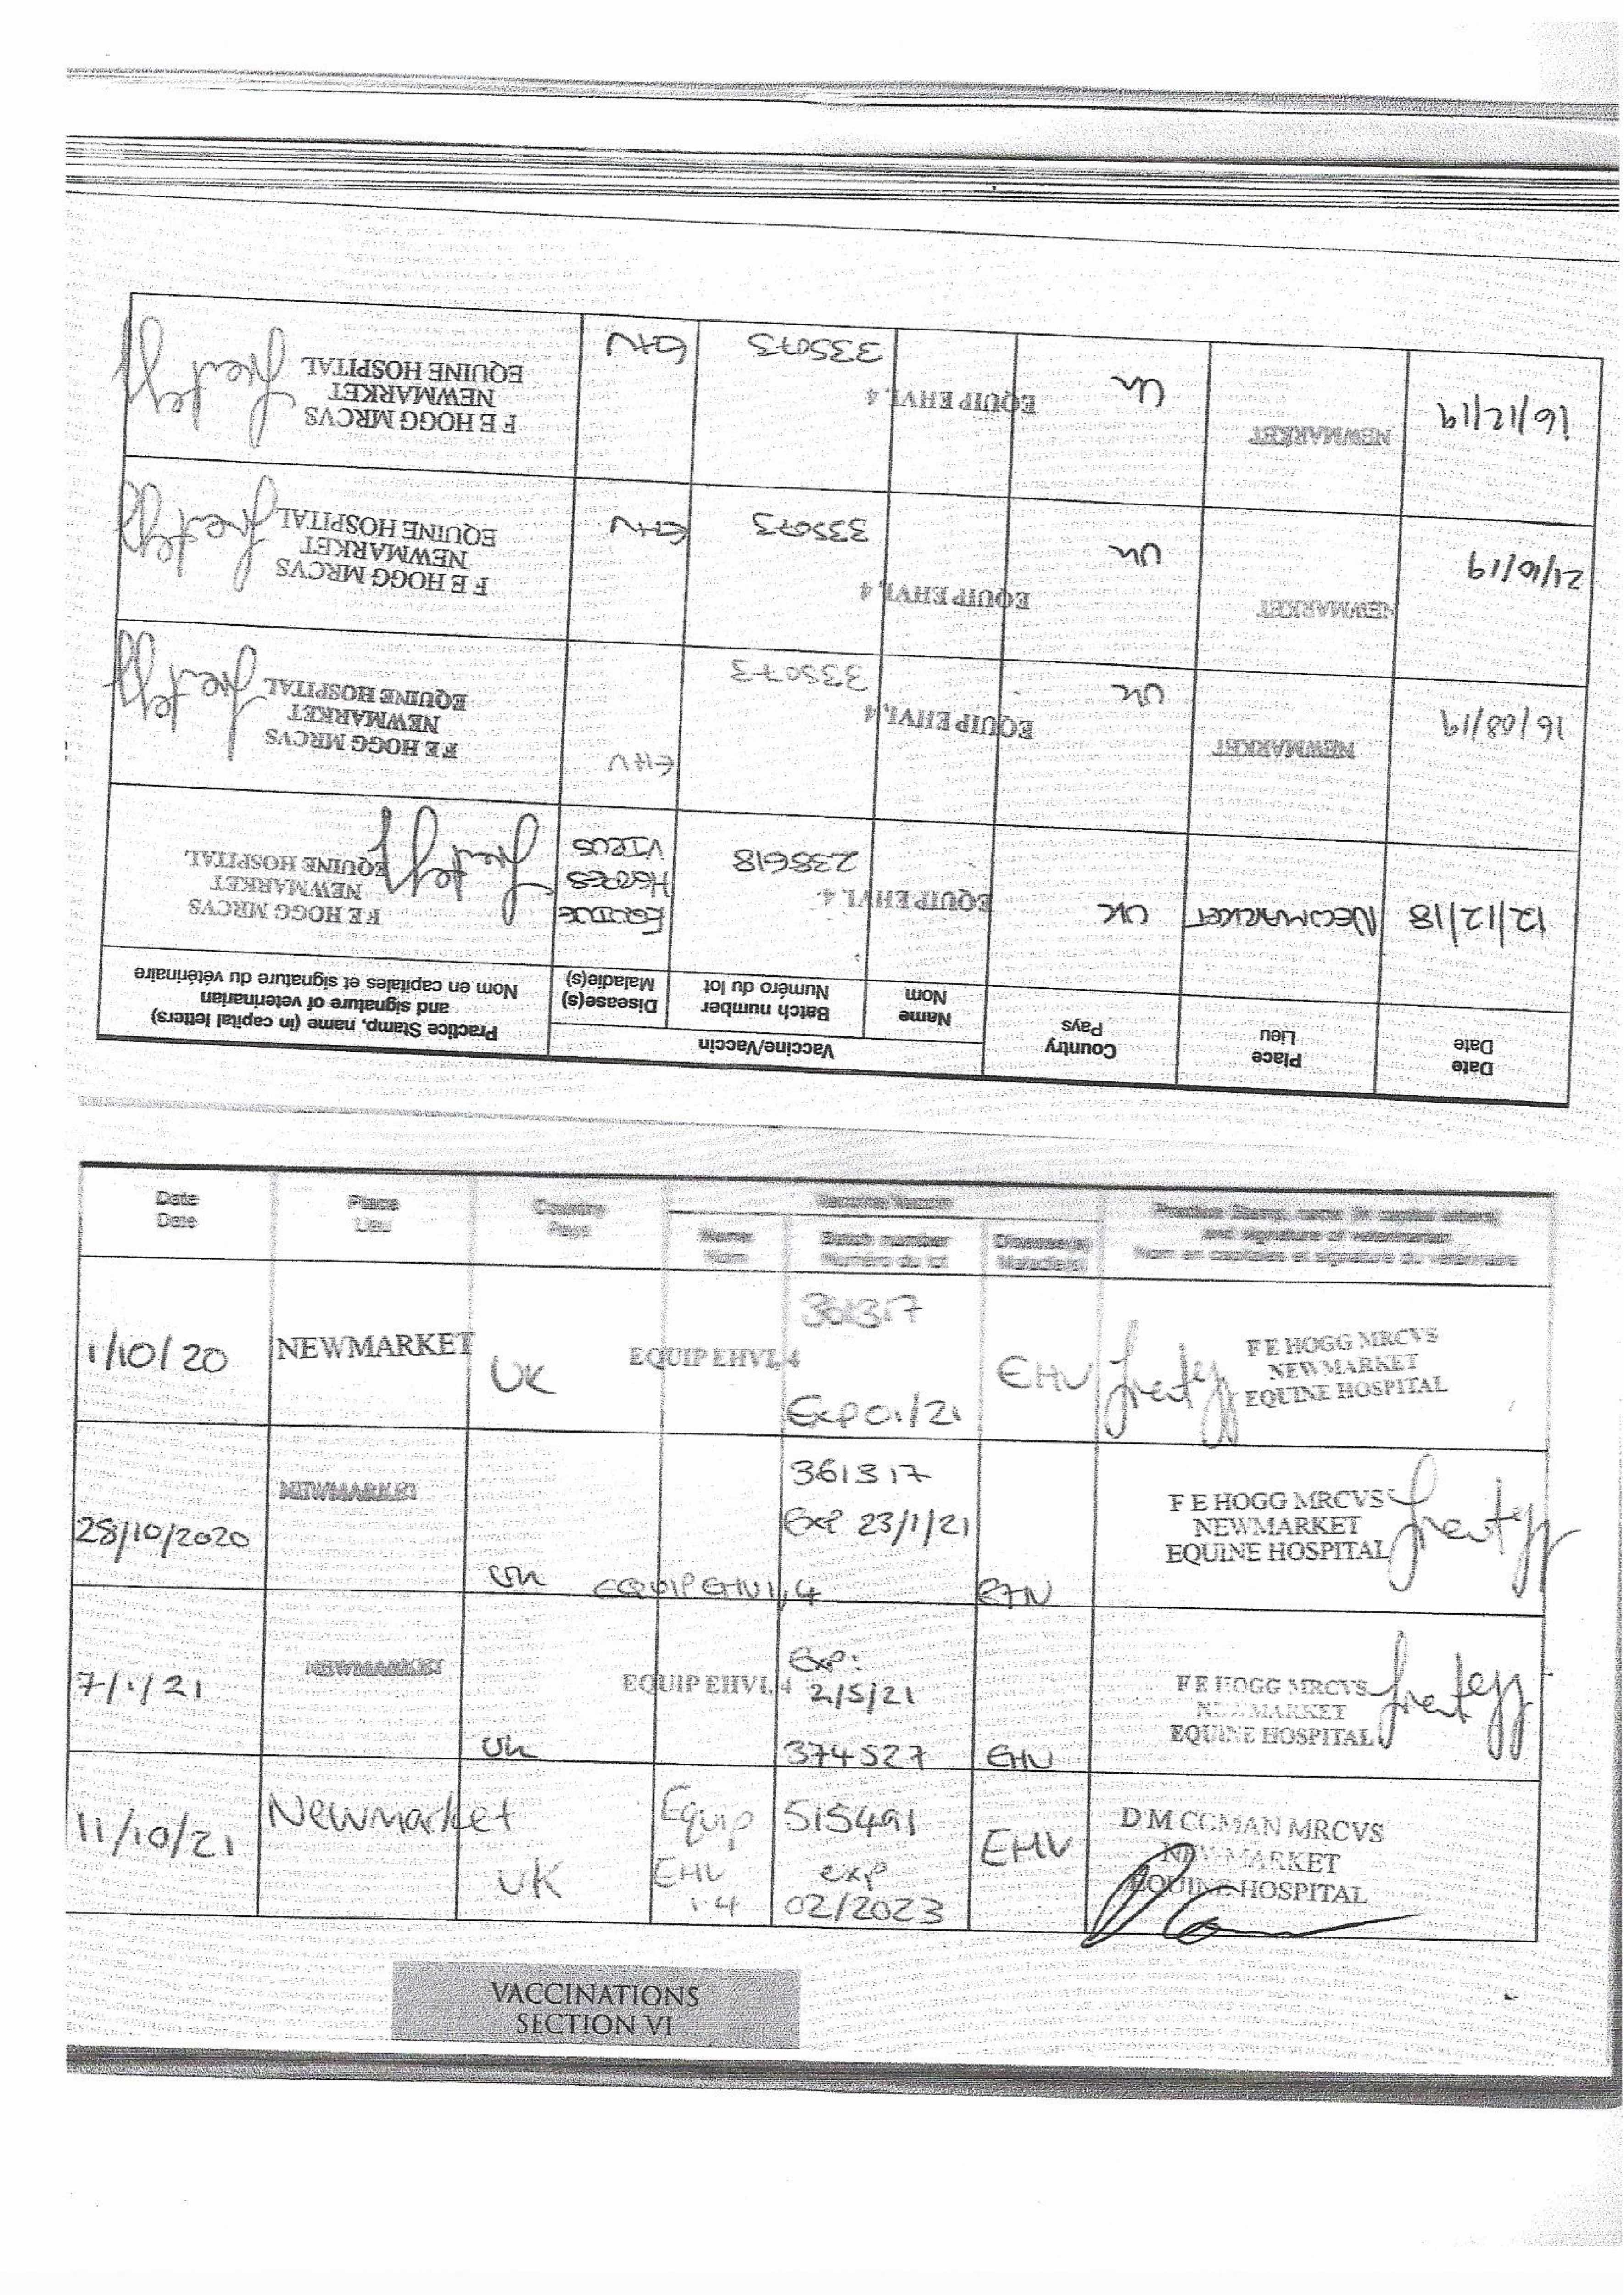 Date
Date
Place
Lieu
Country
Pays
Vaccine/Vaccin
Name
Nom
Batch number
Numéro du lot
Disease(s)
Maladie(s)
Practice Stamp, name (in capital letters)
and signature of veterinarian
Nom en capitales et signature du vétérinaire
12/12/18
NEWMARKET
UK
EQUIP EHV1,4
238618
EQUINE
HERPES
VIRUS
F E HOGG MRCVS
NEWMARKET
EQUINE HOSPITAL
16/08/19
NEWMARKET
UK
EQUIP EHV1,4
335073
EHV
F E HOGG MRCVS
NEWMARKET
EQUINE HOSPITAL
21/10/19
NEWMARKET
UK
EQUIP EHV1,4
335073
EHV
F E HOGG MRCVS
NEWMARKET
EQUINE HOSPITAL
16/12/19
NEWMARKET
UK
EQUIP EHV1,4
335073
EHV
F E HOGG MRCVS
NEWMARKET
EQUINE HOSPITAL
Date
Date
Place
Lieu
Country
Pays
Vaccine/Vaccin
Name
Nom
Batch number
Numéro du lot
Disease(s)
Maladie(s)
Practice Stamp, name (in capital letters)
and signature of veterinarian
Nom en capitales et signature du vétérinaire
1/10/20
NEWMARKET
UK
EQUIP EHV1,4
361317
Exp 01/21
EHV
F E HOGG MRCVS
NEWMARKET
EQUINE HOSPITAL
28/10/2020
NEWMARKET
UK
EQUIP EHV1,4
361317
Exp 23/1/21
EHV
F E HOGG MRCVS
NEWMARKET
EQUINE HOSPITAL
7/1/21
NEWMARKET
UK
EQUIP EHV1,4
Exp:
2/5/21
374527
EHV
F E HOGG MRCVS
NEWMARKET
EQUINE HOSPITAL
11/10/21
Newmarket
UK
Equip
EHV
1.4
515491
exp
02/2023
EHV
MRCVS
NEWMARKET
EQUINE HOSPITAL
VACCINATIONS
SECTION VI